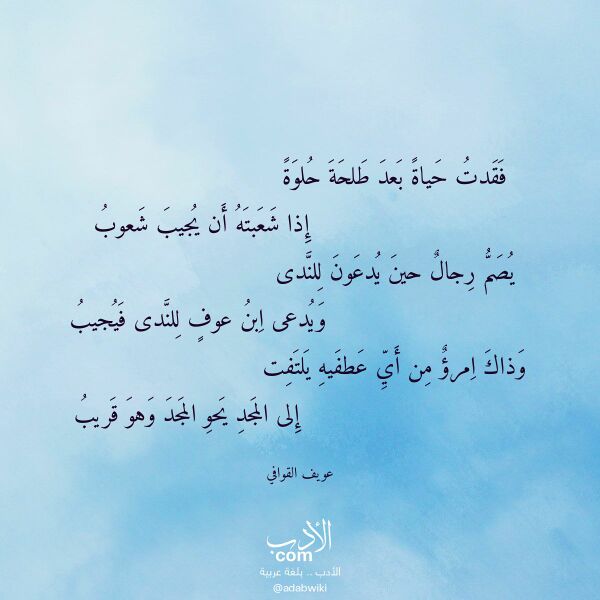 فَقَدتُ حَياةً بَعدَ طَلحَةَ حُلوَةً
إِذا شَعَبتَهُ أَن يُجيبَ شَعوبُ
يُصَمُّ رِجالٌ حينَ يُدعَونَ لِلنَّدى
وَيُدعى اِبنُ عوفٍ لِلنَّدى فَيُجيبُ
وَذاكَ اِمرؤٌ مِن أَيِّ عَطفَيهِ يَلتَفِت
إِلى المَجدِ يَحوِ المَجدَ وَهوَ قَريبُ
عويف القوافي
الأدب
com
الأدب .. بلغة عربية
@adabwiki